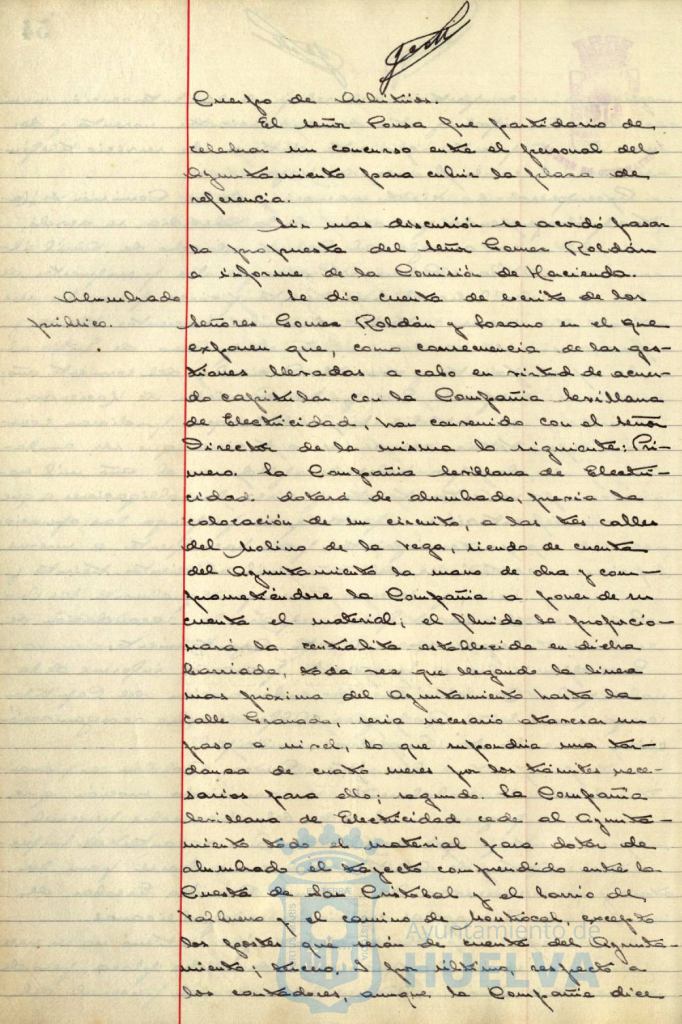 Cuerpo de Arbitrios.
El señor Ponsa fue partidario de
celebrar un concurso entre el personal del
Ayuntamiento para cubrir la plaza de
referencia.
Sin mas discusión se acordó pasar
la propuesta del señor Gomez Roldán
a informe de la Comisión de Hacienda.
Alumbrado
público.
Se dio cuenta de escrito de los
señores Gomez Roldán y Lozano en el que
exponen que, como consecuencia de las ges-
tiones llevadas a cabo en virtud de acuer-
do capitular con la Compañia Sevillana
de Electricidad, han convenido con el señor
Director de la misma lo siguiente: Pri-
mero. La Compañia Sevillana de Electri-
cidad. dotará de alumbrado, previa la
colocación de un circuito, a las tres calles
del Molino de la Vega, siendo de cuenta
del Ayuntamiento la mano de obra y com-
prometiéndose la Compañia a poner de su
cuenta el material; el fluido lo proporcio-
nará la centralita establecida en dicha
barriada, toda vez que llegando la linea
mas próxima del Ayuntamiento hasta la
calle Granada, seria necesario atravesar un
paso a nivel, lo que supondria una tar-
danza de cuatro meses por los trámites nece-
sarios para ello; segundo. La Compañia
Sevillana de Electricidad cede al Ayunta-
miento todo el material para dotar de
alumbrado el trayecto comprendido entre la
Cuesta de San Cristóbal y el barrio de
y el camino de Montrocal, excepto
los postes que serán de cuenta del Ayunta-
miento; tercero. Y por último, respecto a
los contadores, aunque la Compañia dice
Ayuntamiento de
HUELVA